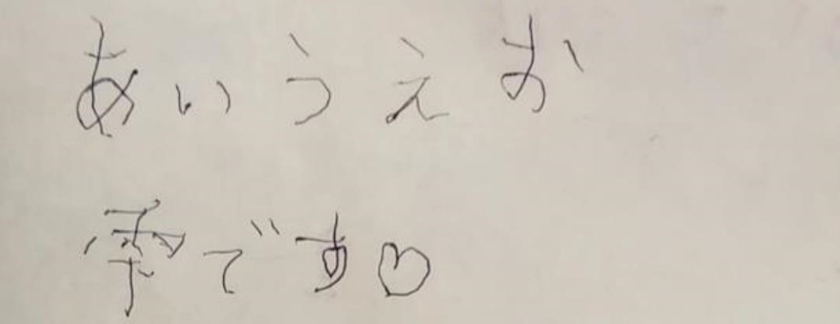 あいうえお
雫です♡